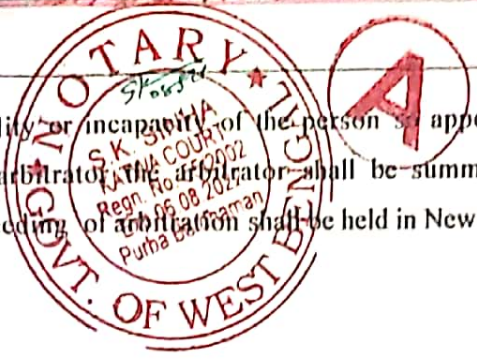 NOTARY
GOVT. OF WEST BENGAL
S. K. SINHA
KATWA COURT
Regn. No.
06 08 202
Purba Bardhaman
A
or incapacity of the person so appo
arbitrator the arbitrator shall be summ
eding of arbitration shall be held in New